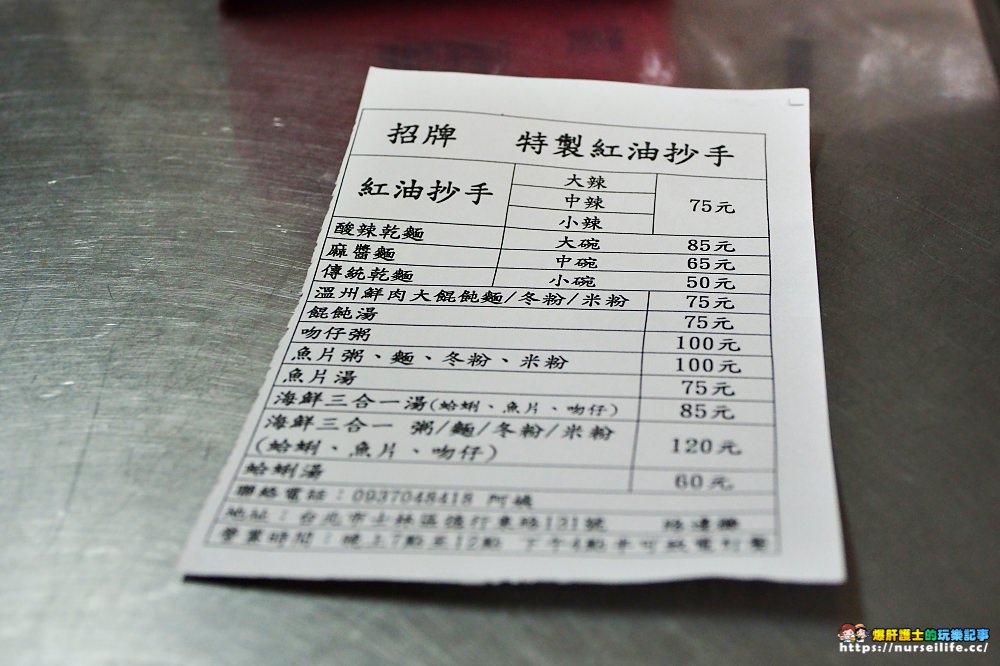 招牌 特製紅油抄手
紅油抄手 大辣 中辣 小辣 75元
酸辣乾麵 大碗 85元
麻醬麵 中碗 65元
傳統乾麵 小碗 50元
溫州鮮肉大餛飩麵/冬粉/米粉 75元
餛飩湯 75元
吻仔粥 100元
魚片粥、麵、冬粉、米粉 100元
魚片湯 75元
海鮮三合一湯(蛤蜊、魚片、吻仔) 85元
海鮮三合一 粥/麵/冬粉/米粉 120元
(蛤蜊、魚片、吻仔)
蛤蜊湯 60元
聯絡電話:0937048418
地址:台北市士林區德行東路131號 路邊攤
營業時間:晚上7點至12點 下午4點
爆肝護士的玩樂記事
https://nurseilife.cc/